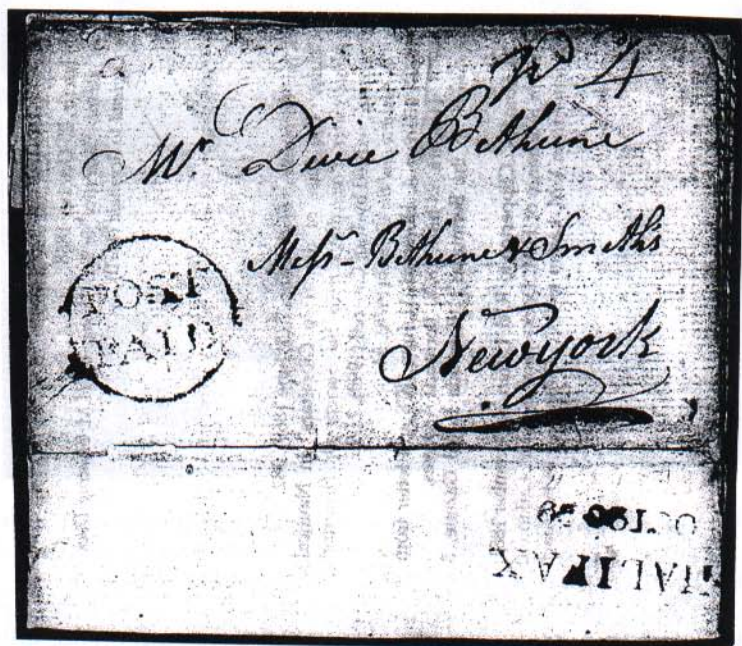 No 4
Mr. Divie Bethune
Messrs- Bethune & Smith's
New york
POST
PAID
HALIFAX